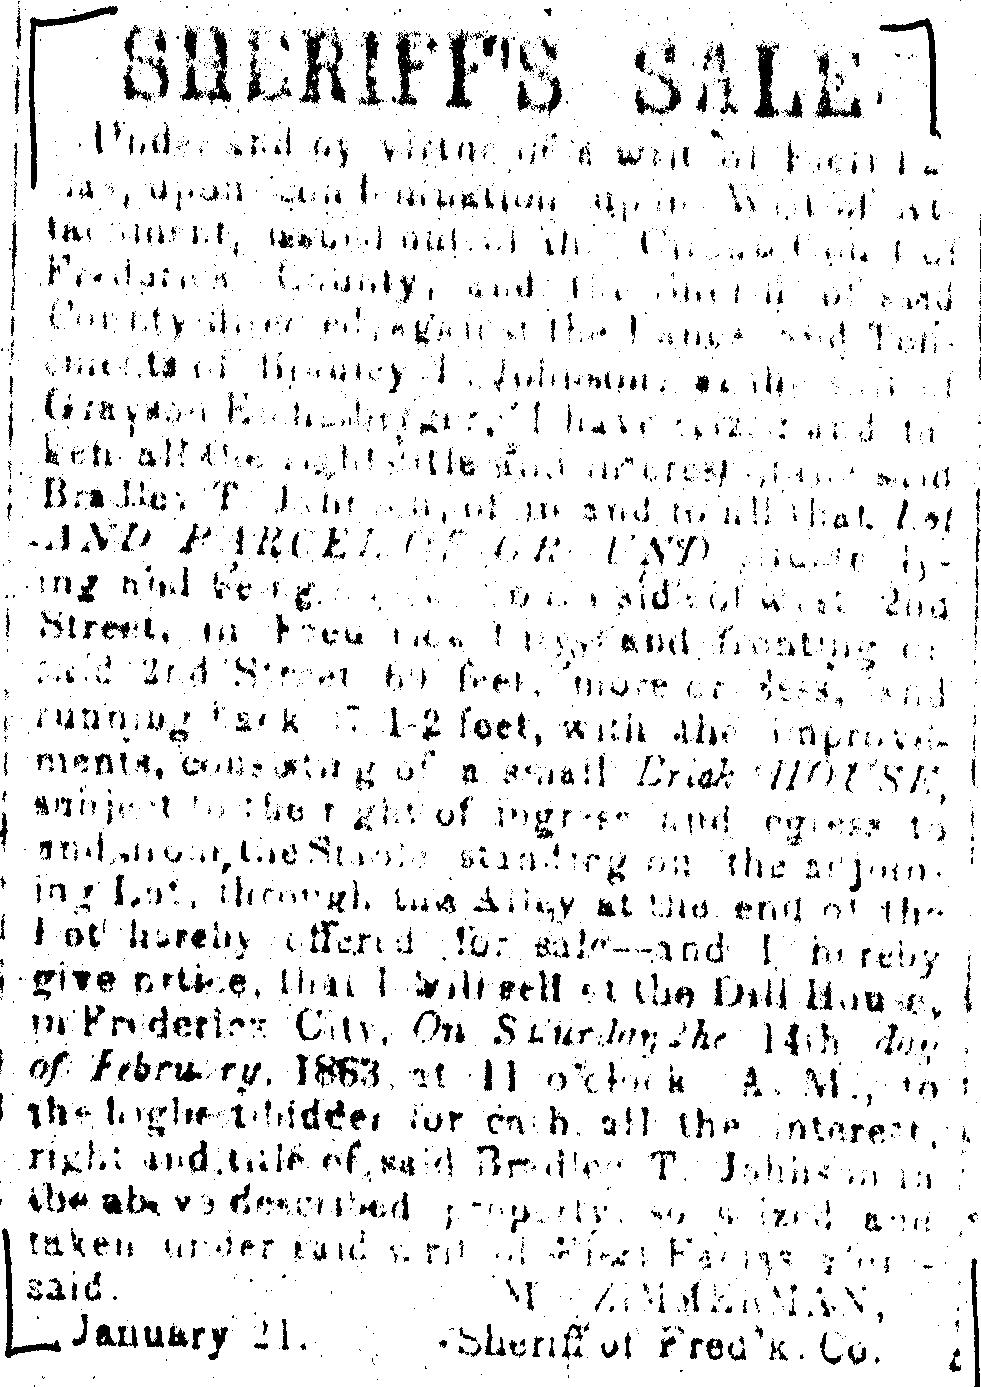 SHERIFF'S SALE.
Under and by virtue of a writ of Fieri Fa-
cias, upon Condemnation upon Writ of At-
tachment, issued out of the Circuit Court of
Frederick County, and the Sheriff of said
County directed, against the Lands and Ten-
ements of Bradley T. Johnson, at the suit of
Grayson Eichelberger, I have seized and ta-
ken all the right title and interest of the said
Bradley T. Johnson, of in and to all that Lot
AND PARCEL OF GROUND situate ly-
ing and being on side of west 2nd
Street, in Frederick City, and fronting on
said 2nd Street 69 feet, more or less, and
running back 1-2 feet, with the improve-
ments, consisting of a small Brick HOUSE,
subject to the right of ingress and egress to
and from, the Stable standing on the adjoin-
ing Lot, through the Alley at the end of the
Lot hereby offered for sale—and I hereby
give notice, that I will sell at the Dill House,
in Frederick City, On Saturday the 14th day
of February, 1863, at 11 o'clock A. M., to
the highest bidder for cash, all the interest,
right and title of said Bradley T. Johnson in
the above described property, so seized and
taken under said writ of Fieri Facias afore-
said.
M. ZIMMERMAN,
January 21. Sheriff of Fred'k. Co.